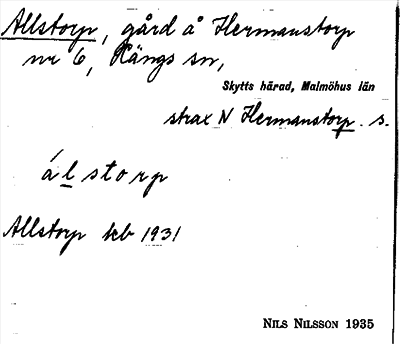 Allstorp, gård å Hermanstorp
nr 6, Kängs sn,
Skytts härad, Malmöhus län
strax N Hermanstorp. s.
álstorp
Allstorp kb 1931
NILS NILSSON 1935